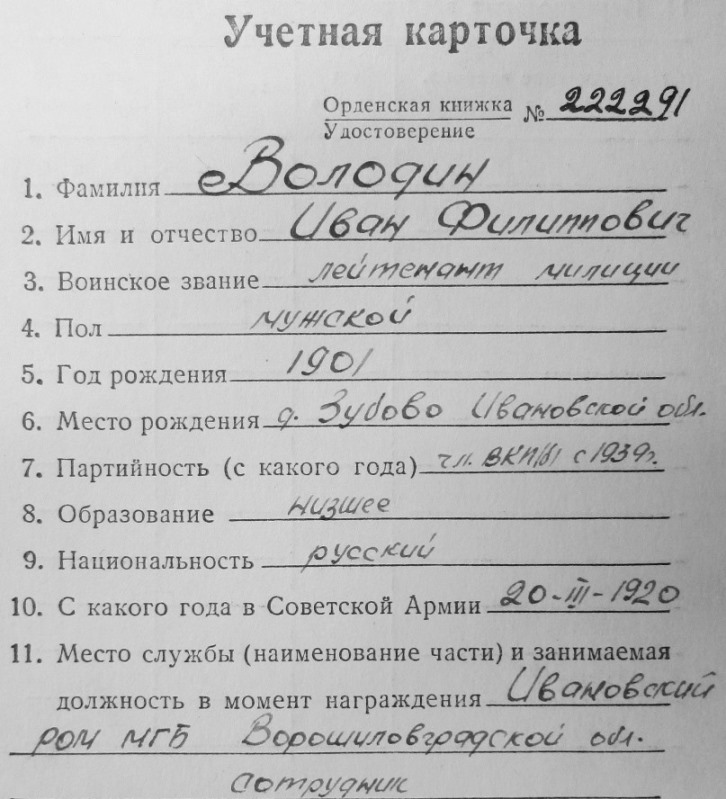 Учетная карточка
Орденская книжка № 222291
Удостоверение
1. Фамилия Володин
2. Имя и отчество Иван Филиппович
3. Воинское звание лейтенант милиции
4. Пол мужской
5. Год рождения 1901
6. Место рождения д. Зубово Ивановской обл.
7. Партийность (с какого года) чл. ВКП(б) с 1939г.
8. Образование низшее
9. Национальность русский
10. С какого года в Советской Армии 20-III-1920
11. Место службы (наименование части) и занимаемая
должность в момент награждения Ивановский
РОМ МГБ Ворошиловградской обл.
сотрудник